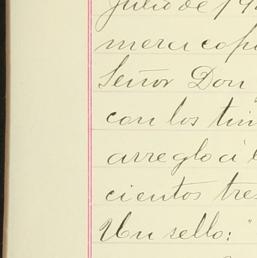 Julio de 19
mera copi
Señor Don
con los tim
arreglo á l
cientos tre
Un sello: "